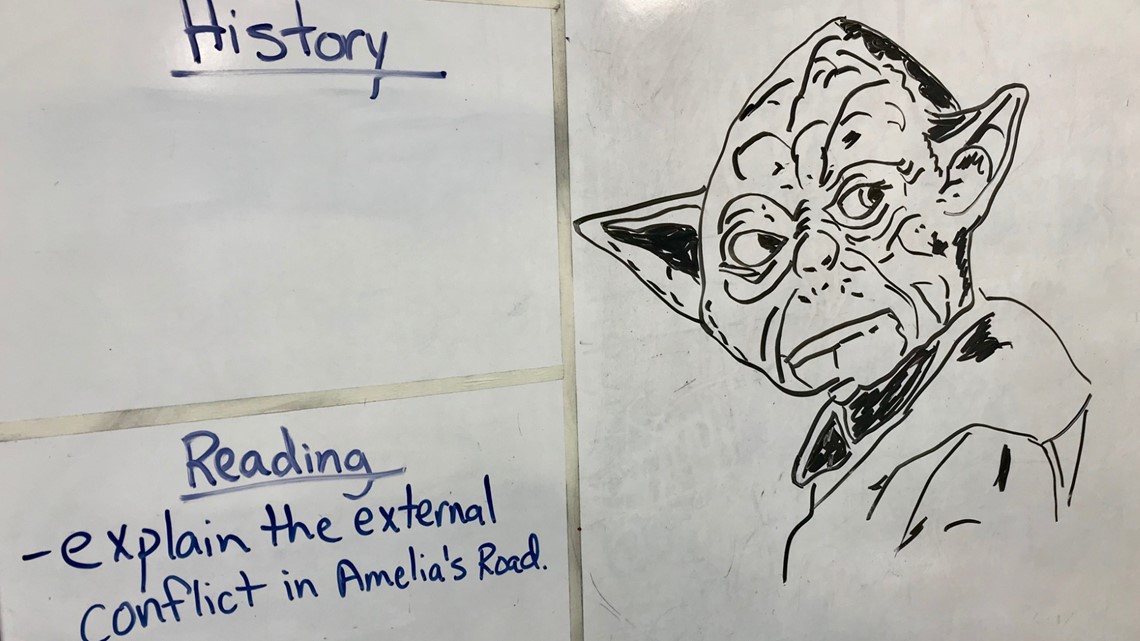 History
Reading
-explain the external
conflict in Amelia's Road.